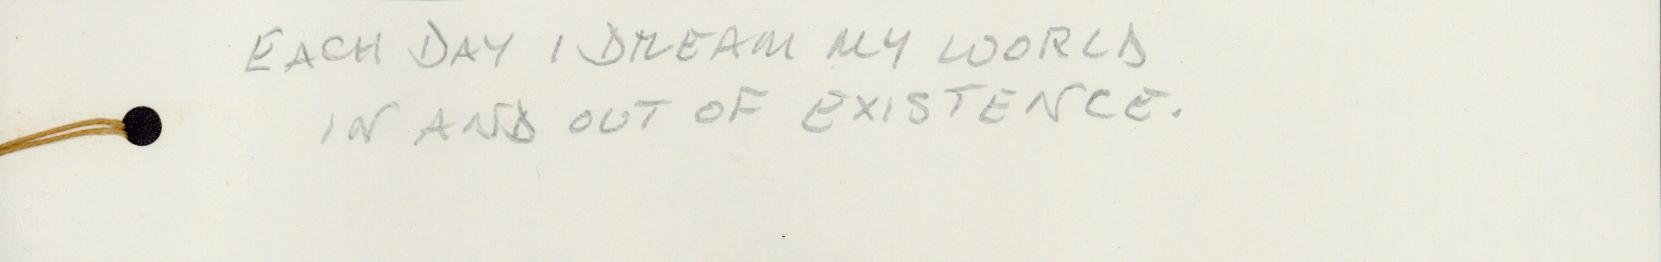 EACH DAY I DREAM MY WORLD
IN AND OUT OF EXISTENCE.